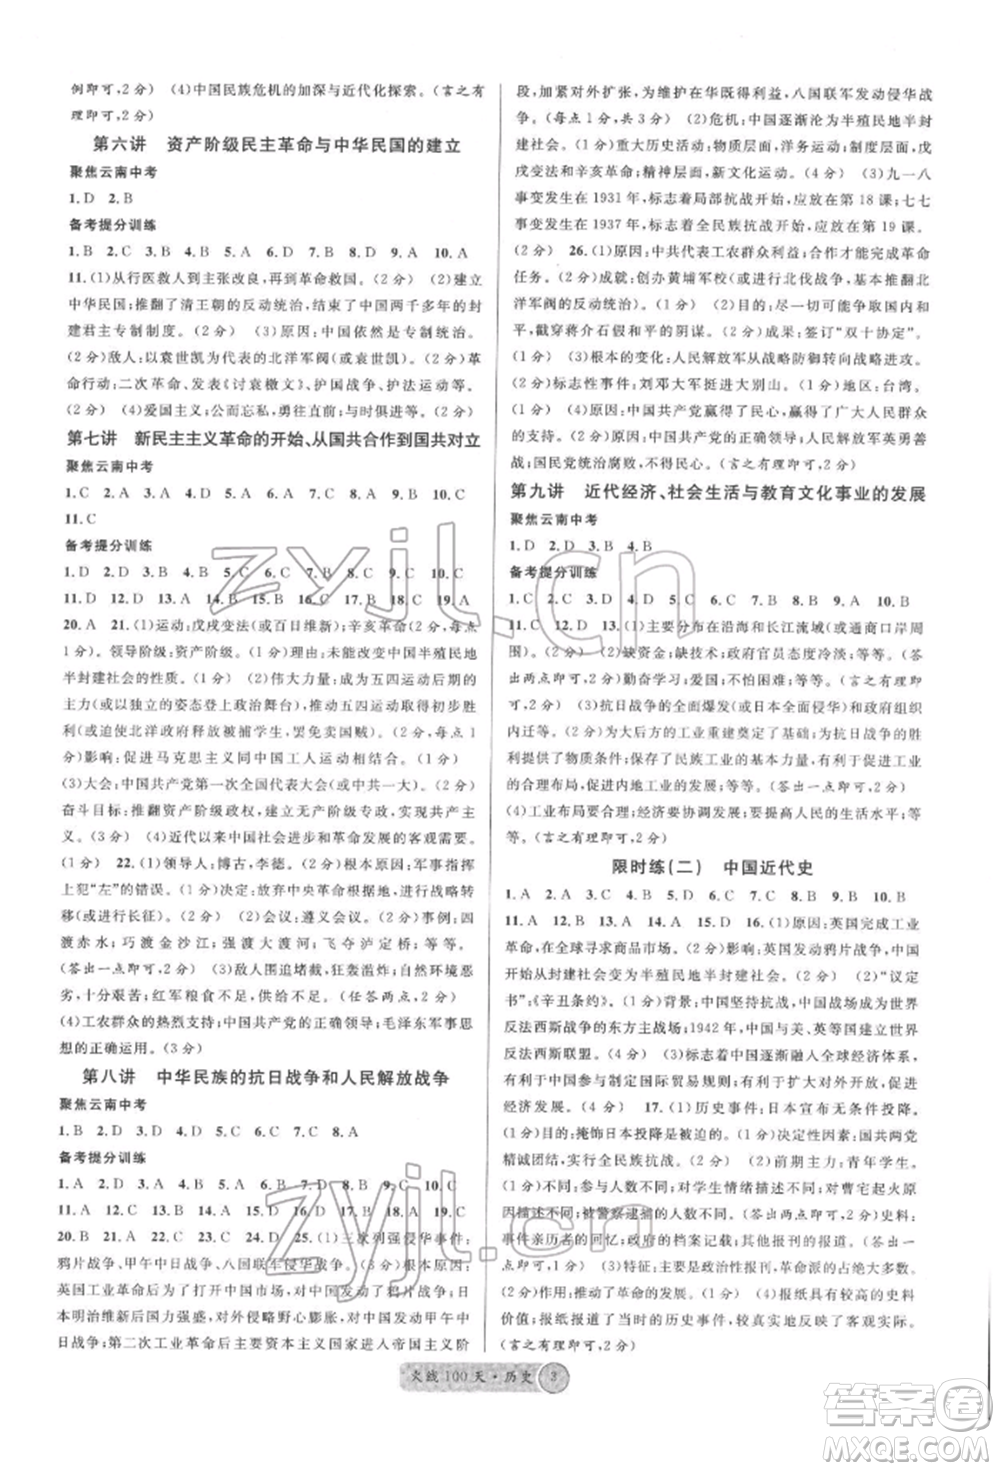 例即可,2 分) (4)中国民族危机的加深与近代化探索。(言之有
理即可,2 分)
第六讲 资产阶级民主革命与中华民国的建立
聚焦云南中考
1. D 2. B
备考提分训练
1. B 2. C 3. B 4. D 5. A 6. C 7. C 8. D 9. D 10. A
11. (1)从行医救人到主张改良,再到革命救国。(2 分) (2)建立
中华民国;推翻了清王朝的反动统治,结束了中国两千多年的封
建君主专制制度。(2 分) (3)原因:中国依然是专制统治。
(2 分)敌人:以袁世凯为代表的北洋军阀(或袁世凯)。(2 分)革
命行动:二次革命、发表《讨袁檄文》、护国战争、护法运动等。
(2 分) (4)爱国主义;公而忘私,勇往直前;与时俱进等。(2 分)
第七讲 新民主主义革命的开始、从国共合作到国共对立
聚焦云南中考
1. C 2. A 3. D 4. A 5. A 6. C 7. C 8. C 9. A 10. A
11. C
备考提分训练
1. D 2. A 3. A 4. D 5. D 6. C 7. C 8. C 9. C 10. A
11. D 12. D 13. A 14. A 15. A 16. B 17. C 18. C 19. A
20. A 21. (1)运动:戊戌变法(或百日维新);辛亥革命(2 分,每点
1 分)。领导阶级:资产阶级。(1 分)理由:未能改变中国半殖民地半
封建社会的性质。(1 分) (2)伟大力量:成为五四运动后期的
主力(或以独立的姿态登上政治舞台),推动五四运动取得初步胜
利(或迫使北洋政府释放被捕学生,罢免卖国贼)。(2 分,每点
1 分)影响:促进马克思主义同中国工人运动相结合。(1 分)
(3)大会:中国共产党第一次全国代表大会(或中共一大)。(1 分)
奋斗目标:推翻资产阶级政权,建立无产阶级专政,实现共产主
义。(1 分) (4)近代以来中国社会进步和革命发展的客观需要。
(1 分) 22. (1)领导人:博古,李德。(2 分)根本原因:军事指挥
上犯“左”的错误。(1 分)决定:放弃中央革命根据地,进行战略转
移(或进行长征)。(1 分) (2)会议:遵义会议。(2 分)事例:四
渡赤水;巧渡金沙江;强渡大渡河;飞夺泸定桥;等等。(2 分)
(答出一点即可,2 分) (3)困难:敌人围追堵截,狂轰滥炸;自然环境恶
劣,十分艰险;红军粮食不足,供给困难。(任答两点,2 分)
(4)工农群众的热烈支持;中国共产党的正确领导;毛泽东军事思
想的正确运用。(3 分)
第八讲 中华民族的抗日战争和人民解放战争
聚焦云南中考
1. B 2. D 3. D 4. D 5. A 6. D 7. C 8. A
备考提分训练
1. A 2. D 3. A 4. D 5. A 6. C 7. B 8. D 9. C 10. C
11. A 12. C 13. C 14. A 15. C 16. B 17. C 18. D 19. C
20. B 21. D 22. A 23. C 24. D 25. (1)主要列强侵华事件:
鸦片战争、甲午中日战争、八国联军侵华战争。(3 分)影响:英
国为打开中国市场,发动了鸦片战争;
本明治维新后国力强盛,对外侵略野心膨胀,发动甲午中
日战争;第二次工业革命后主要资本主义国家进入帝国主义阶
段,加紧对外扩张,为维护在华既得利益,八国联军发动侵华战
争。(每点 2 分) (2)危机:中国逐渐沦为半殖民地半封建社会。
(1 分)重大历史活动:太平天国运动、义和团运动、洋务运动、戊
戌变法、辛亥革命;精神层面,新文化运动。(2 分) (3)九一八
事变发生在 1931 年,标志着局部抗战开始,应放在第 18 课;七七
事变发生在 1937 年,标志着全民族抗战开始,应放在第 19 课。
(2 分) 26. (1)原因:中共代表工农群众利益;合作才能完成革命任务。
(2 分)成就:创办黄埔军校(或进行北伐战争,基本推翻北
洋军阀的反动统治)。(1 分) (2)目的:尽一切可能争取国内和
平,戳穿蒋介石假和平的阴谋。(2 分)成果:签订“双十协定”。
(1 分) (3)根本的变化:人民解放军从战略防御转向战略进攻。
(1 分)标志性事件:刘邓大军挺进大别山。(1 分)地区:台湾。
(1 分) (4)原因:中国共产党赢得了广大人民群众
的支持;中国共产党的正确领导;人民解放军英勇善
战;国民党统治腐败,不得民心。(言之有理即可,2 分)
第九讲 近代经济、社会生活与教育文化事业的发展
聚焦云南中考
1. D 2. D 3. B 4. B
备考提分训练
1. C 2. C 3. D 4. B 5. D 6. A 7. B 8. A 9. A 10. B
11. C 12. D 13. (1)主要分布在沿海和长江流域(或通商口岸周
围)。(2 分) (2)缺资金;缺技术;政府官员态度冷淡;等等。(答
出两点即可,2 分)勤奋学习;爱国;不畏艰难。(言之有理即可,
2 分) (3)抗日战争的全面爆发(或日本全面侵华)和政府组织
内迁。(2 分)影响:为大后方的工业重建奠定了基础;为抗战胜
利提供了物质保障;保存了民族工业的基本力量;有利于战时经
济的发展;促进内地工业发展;等等。(答出一点即可,2 分)
(4)工业布局要合理;经济要协调发展;要提高人民的生活水平;等
等。(言之有理即可,2 分)
限时练(二) 中国近代史
1. A 2. D 3. C 4. D 5. A 6. C 7. D 8. B 9. B 10. B
11. A 12. A 13. A 14. A 15. D 16. (1)原因:英国完成工业
革命,在全球寻求商品市场。(2 分)影响:英国发动鸦片战争,中国
开始从封建社会变为半殖民地半封建社会。(2 分) (2)“议定
书”:《辛丑条约》。(1 分)背景:中国坚持抗战,中国战场成为世界
反法西斯战争的东方主战场;1942 年,中国与美、英等国建立世界
反法西斯联盟。(2 分) (3)标志着中国逐渐融入全球经济体系;
有利于中国参与制定国际贸易规则;有利于扩大出口;有利于促进
经济发展。(2 分) 17. (1)历史事件:日本宣布无条件投降。
(1 分)目的:掩饰日本投降是战败投降。(1 分)决定性因素:国共两党
精诚团结,实行全民族抗战。(1 分) (2)前期主力:青年学生。
(1 分)不同:参与人数不同;学生情绪描述不同;对曹宅起火
描述不同;被警察逮捕的人数不同。(答出两点即可,2 分)史料:
事件亲历者的回忆;政府的档案记载;报刊的报道。(答出一点即可,
2 分) (3)特征:政治性报刊,革命派的报刊占大多数。
(2 分)作用:推动了革命的发展。(1 分) (4)报纸具有较高的史料
价值,能够真实反映当时的社会现实。(1 分)
(言之有理即可,2 分)
炎战 100 天·历史 3
zyjl.cn
zyjl.cn
答案卷
MXQE.COM